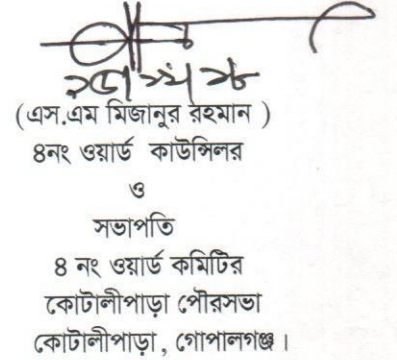 (এস.এম মিজানুর রহমান )
৪নং ওয়ার্ড কাউন্সিলর
ও
সভাপতি
৪ নং ওয়ার্ড কমিটির
কোটালীপাড়া পৌরসভা
কোটালীপাড়া, গোপালগঞ্জ।